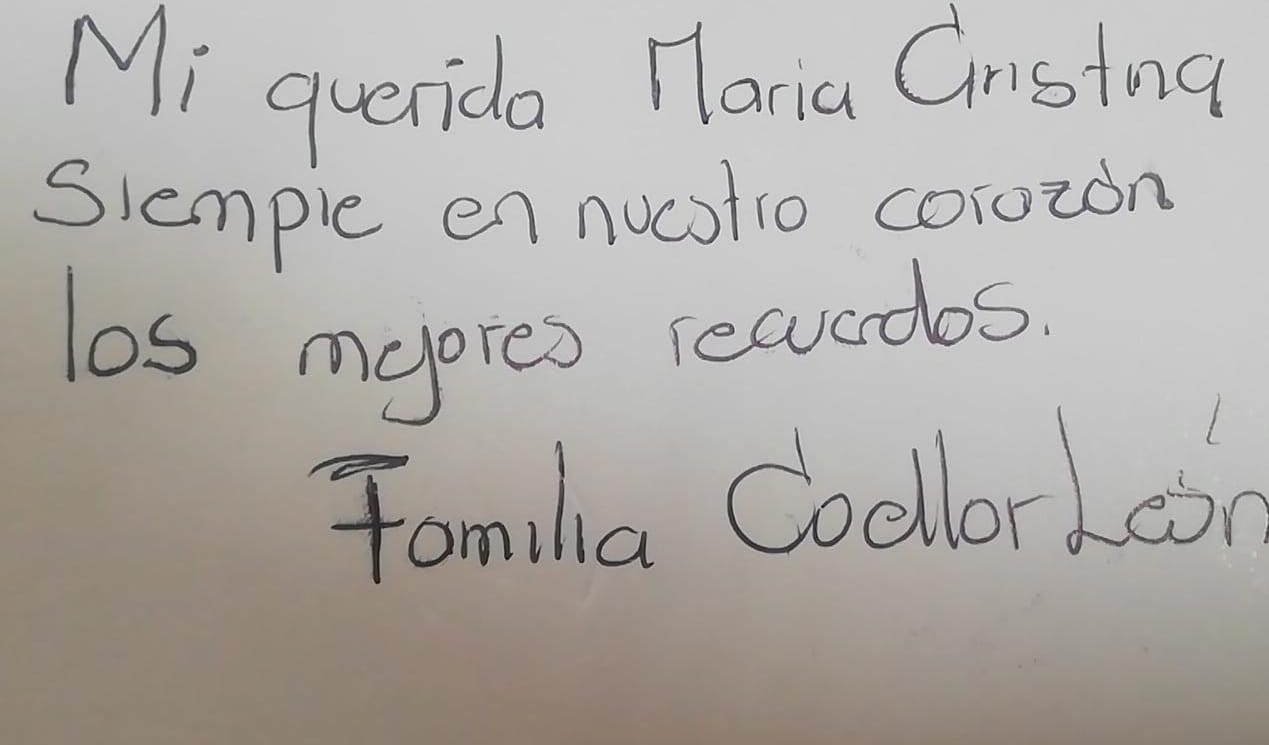 Mi querida Maria Cristina
Siempre en nuestro corazón
los mejores recuerdos.
Familia Coellor León